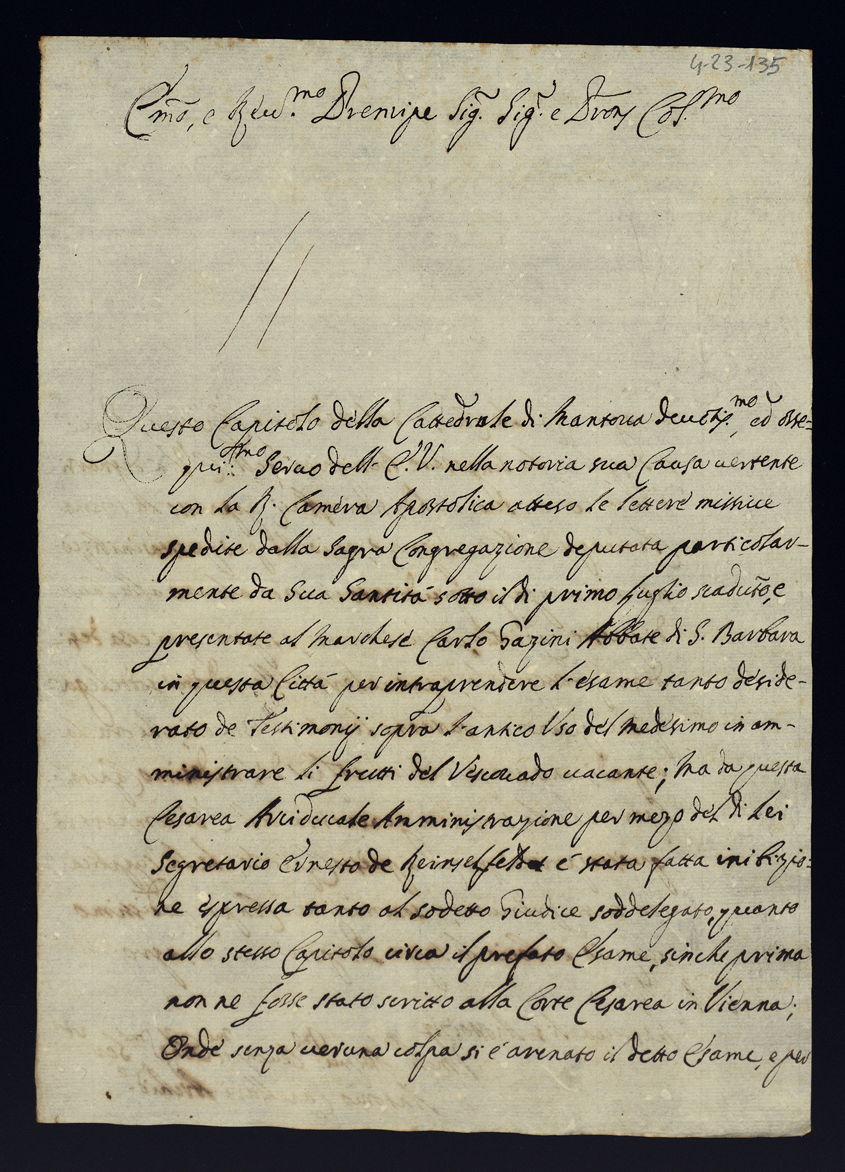 4-23-135
Em̃o, e Reu.mo Prencipe Sig.r Sig.r e Pron Col.mo
Questo Capitolo della Cattedrale di Mantoua deuotis.mo, ed osse=
qui:mo Seruo dell' E. V. nella notoria sua Causa uertente
con la R. Camera Apostolica atteso le lettere missiue
spedite dalla Sagra Congregazione deputata particolar-
mente da Sua Santità sotto il di primo luglio scaduto, e
presentate al Marchese Carlo Gazini Abbate di S. Barbara
in questa Città per intraprendere l'esame tanto deside-
rato de Testimonij sopra l'antico Uso del medesimo in am-
ministrare li frutti del Vescouado uacante; Ma da questa
Cesarea Arciducale Amministrazione per mezo del di Lei
Segretario Ernesto de Reinselfeldt è stata fatta inibizio=
ne espressa tanto al sodetto Giudice soddelegato, quanto
allo stesso Capitolo circa il prefato Esame, sinche prima
non ne fosse stato scritto alla Corte Cesarea in Vienna;
Onde senza ueruna colpa si è arenato il detto Esame, e per